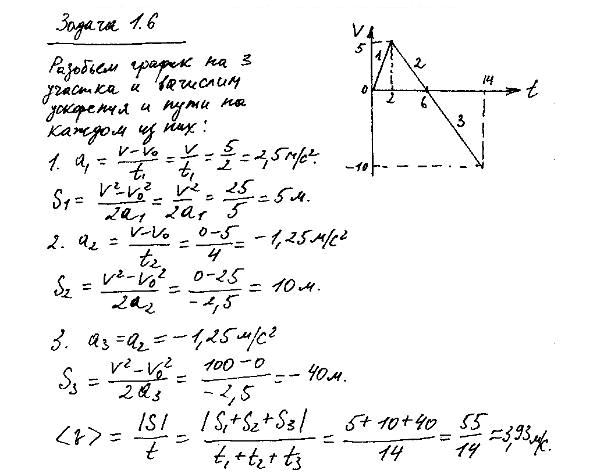 Задача 1.6
Разобьем график на 3
участка и вычислим
ускорения и пути на
каждом из них:
1. a₁ = (v-v₀)/t₁ = v/t₁ = 5/2 = 2,5 м/с².
S₁ = (v²-v₀²)/2a₁ = v²/2a₁ = 25/5 = 5 м.
2. a₂ = (v-v₀)/t₂ = (0-5)/4 = -1,25 м/с²
S₂ = (v²-v₀²)/2a₂ = (0-25)/-2,5 = 10 м.
3. a₃ = a₂ = -1,25 м/с²
S₃ = (v²-v₀²)/2a₃ = (100-0)/-2,5 = -40 м.
= |S|/t = |S₁+S₂+S₃|/(t₁+t₂+t₃) = (5+10+40)/14 = 55/14 ≈ 3,93 м/с.
V
5
1
2
14
0
2
6
t
3
-10